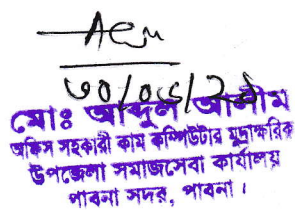 মোঃ আব্দুল আলীম
অফিস সহকারী কাম কম্পিউটার মুদ্রাক্ষরিক
উপজেলা সমাজসেবা কার্যালয়
পাবনা সদর, পাবনা।